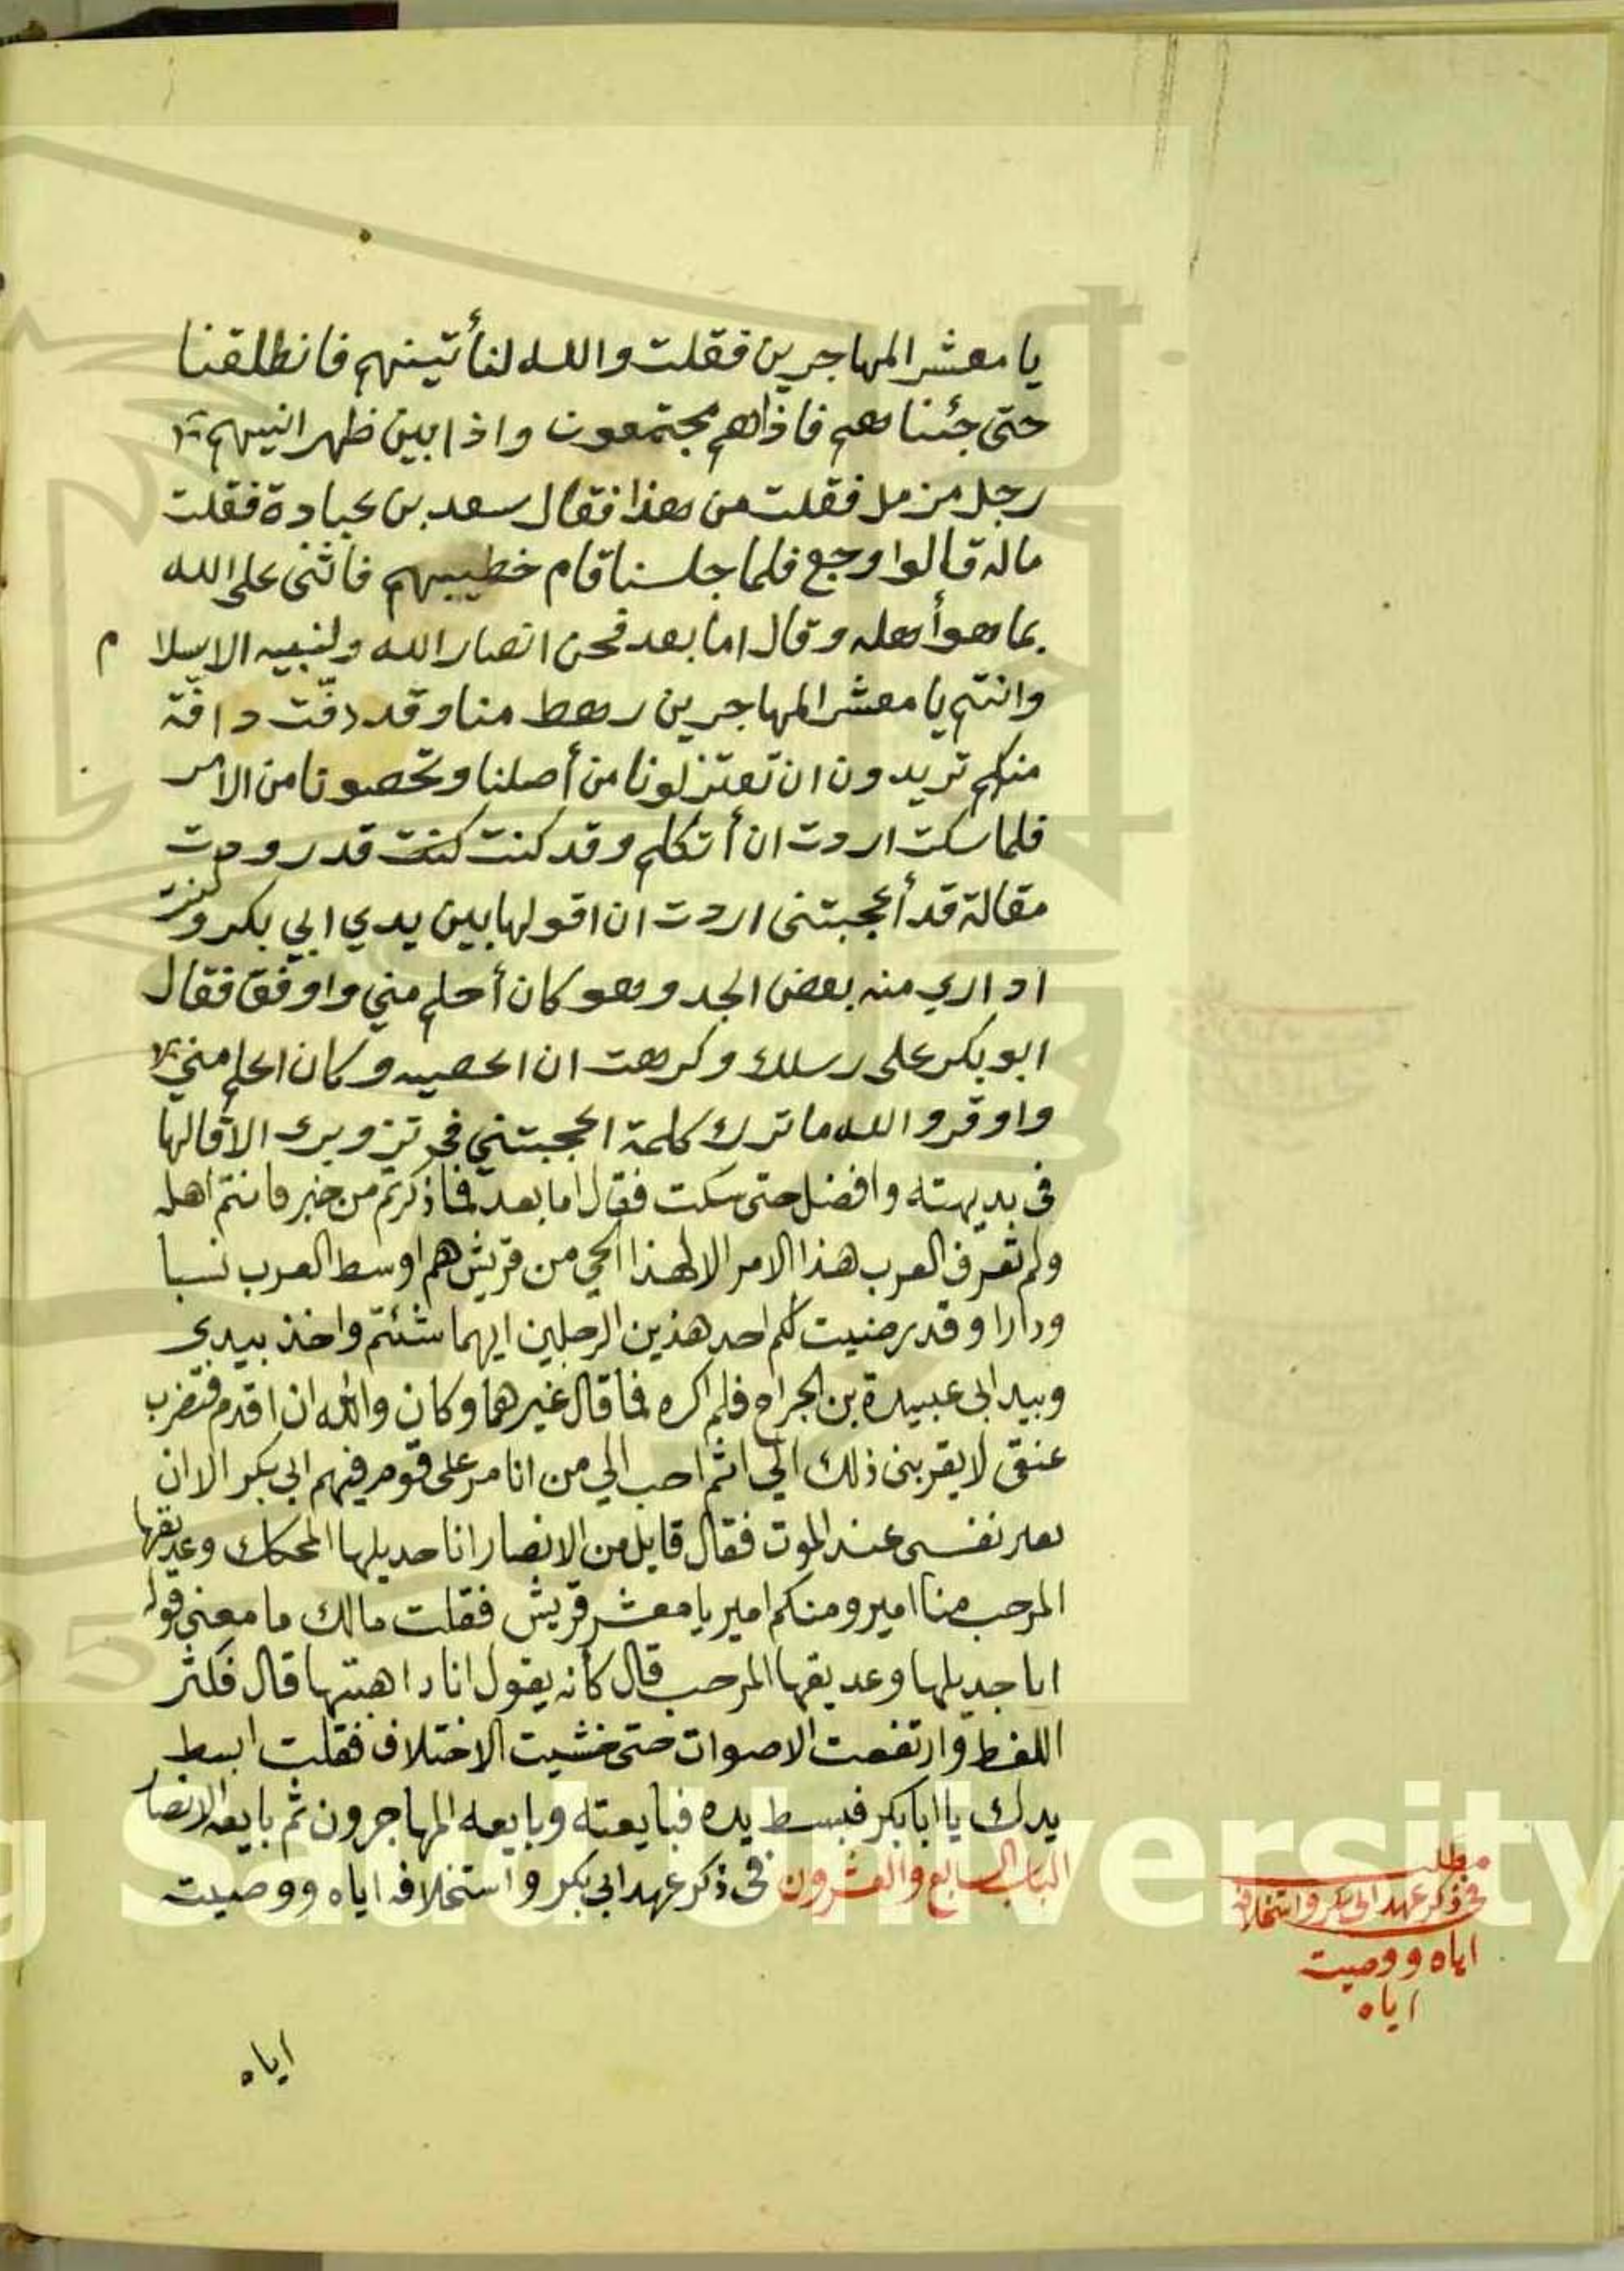 يا معشر المهاجرين فقلت والله لنأتينهم فانطلقنا
حتى جئناهم فاذاهم مجتمعون واذا بين ظهرانيهم
رجل مزمل فقلت من هذا فقال سعد بن عبادة فقلت
ماله قالوا وجع فلما جلسنا قام خطيبهم فاثنى على الله
بما هو أهله وقال اما بعد فحن انصار الله ولنبيه الاسلام
وانتم يا معشر المهاجرين رهط منا وقد دفّت دافّة
منكم تريدون ان تعتزلونا من أصلنا وتحصونا من الامر
فلما سكت اردت ان أتكلم وقد كنت كنت قد رودت
مقالة قد أعجبتنى اردت ان اقولها بين يدي ابي بكر وكنت
اداري منه بعض الجد وهو كان أحلم مني واوفق فقال
ابو بكر على رسلك وكرهت ان اعصيه وكان احلم مني
واوقر والله ما ترك كلمة اعجبتني في تزويرى الا قالها
فى بديهته وافضل حتى سكت فقال اما بعد فما ذكرتم من خير فانتم اهله
ولم تعرف العرب هذا الامر الا لهذا الحي من قريش هم اوسط العرب نسبا
ودارا وقد رضيت لكم احد هذين الرجلين ايهما شئتم واخذ بيدى
وبيد ابى عبيدة بن الجراح فلم اكره مما قال غيرهما وكان والله ان اقدم فتضرب
عنقى لا يقربنى ذلك الى اثم احب الي من انا مر على قوم فيهم ابى بكر الا ان
نفسى عند الموت فقال قايل من الانصار انا جديلها المحكك وعديقها
المرجب منا امير ومنكم امير يا معشر قريش فقلت مالك ما معنى قوله
انا جديلها وعديقها المرجب قال كأنه يقول انا داهيتها قال فكثر
اللغط وارتفعت الاصوات حتى خشيت الاختلاف فقلت ابسط
يدك يا ابا بكر فبسط يده فبايعته وبايعه المهاجرون ثم بايعه الانصار
الباب السابع والعشرون فى ذكر عهد ابى بكر واستخلافه اياه ووصيت
اياه
مطلب
فى ذكر عهد ابى بكر واستخلافه
اياه ووصيت
اياه
King Saud University